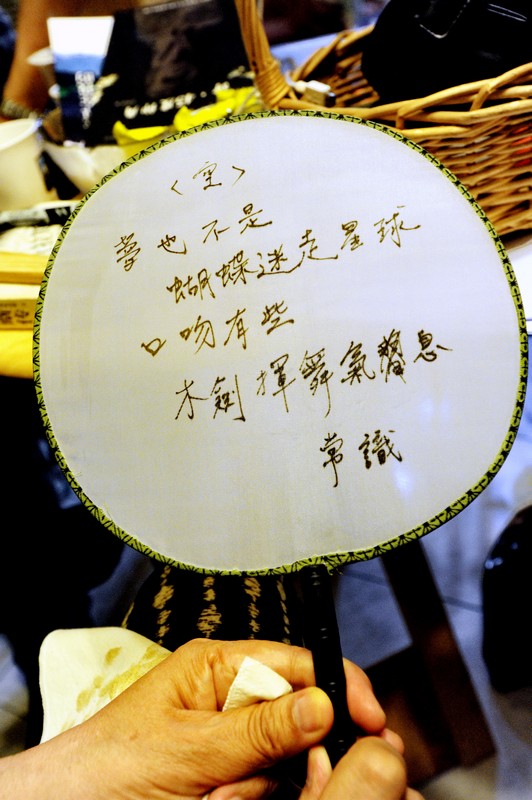 〈空〉
夢也不是
蝴蝶迷走星球
口吻有些
木劍揮舞氣聲息
常識